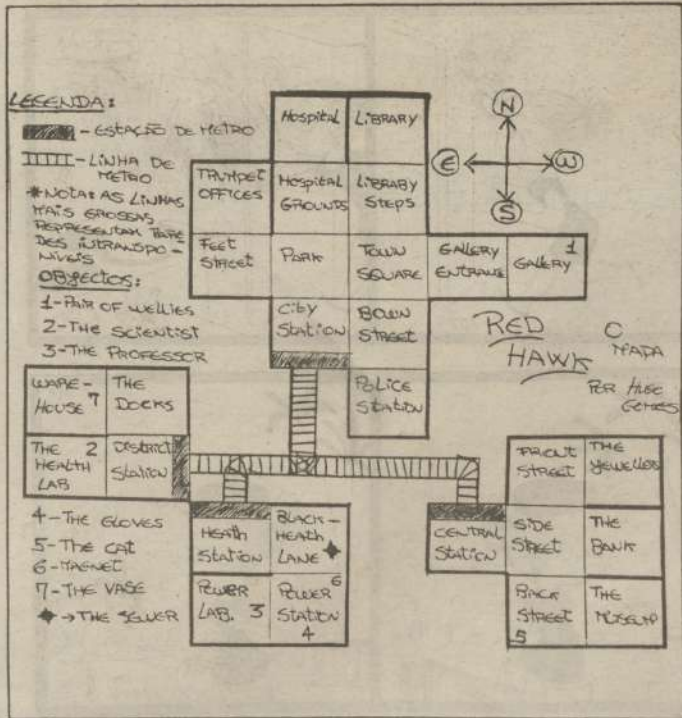 LEGENDA:
- ESTAÇÃO DE METRO
- LINHA DE
METRO
*NOTA: AS LINHAS
MAIS GROSSAS
REPRESENTAM PARE
DES INTRANSPO-
NIVEIS
OBJECTOS:
1-PAIR OF WELLIES
2-THE SCIENTIST
3-THE PROFESSOR
HOSPITAL
LIBRARY
TRUMPET
OFFICES
HOSPITAL
GROUNDS
LIBRARY
STEPS
FEET
STREET
PARK
TOWN
SQUARE
GALLERY
ENTRANCE
GALLERY 1
CITY
STATION
BOWN
STREET
POLICE
STATION
N
E
W
S
RED
HAWK
O
MAPA
POR HUGO
GOMES
WARE-
HOUSE 7
THE
DOCKS
THE 2
HEALTH
LAB
DISTRICT
STATION
4-THE GLOVES
5-THE CAT
6-MAGNET
7-THE VASE
→THE SEWER
HEATH
STATION
BLACK-
HEATH
LANE
POWER
LAB. 3
POWER 6
STATION
4
CENTRAL
STATION
FRONT
STREET
THE
JEWELLERS
SIDE
STREET
THE
BANK
BACK
STREET
5
THE
MUSEUM